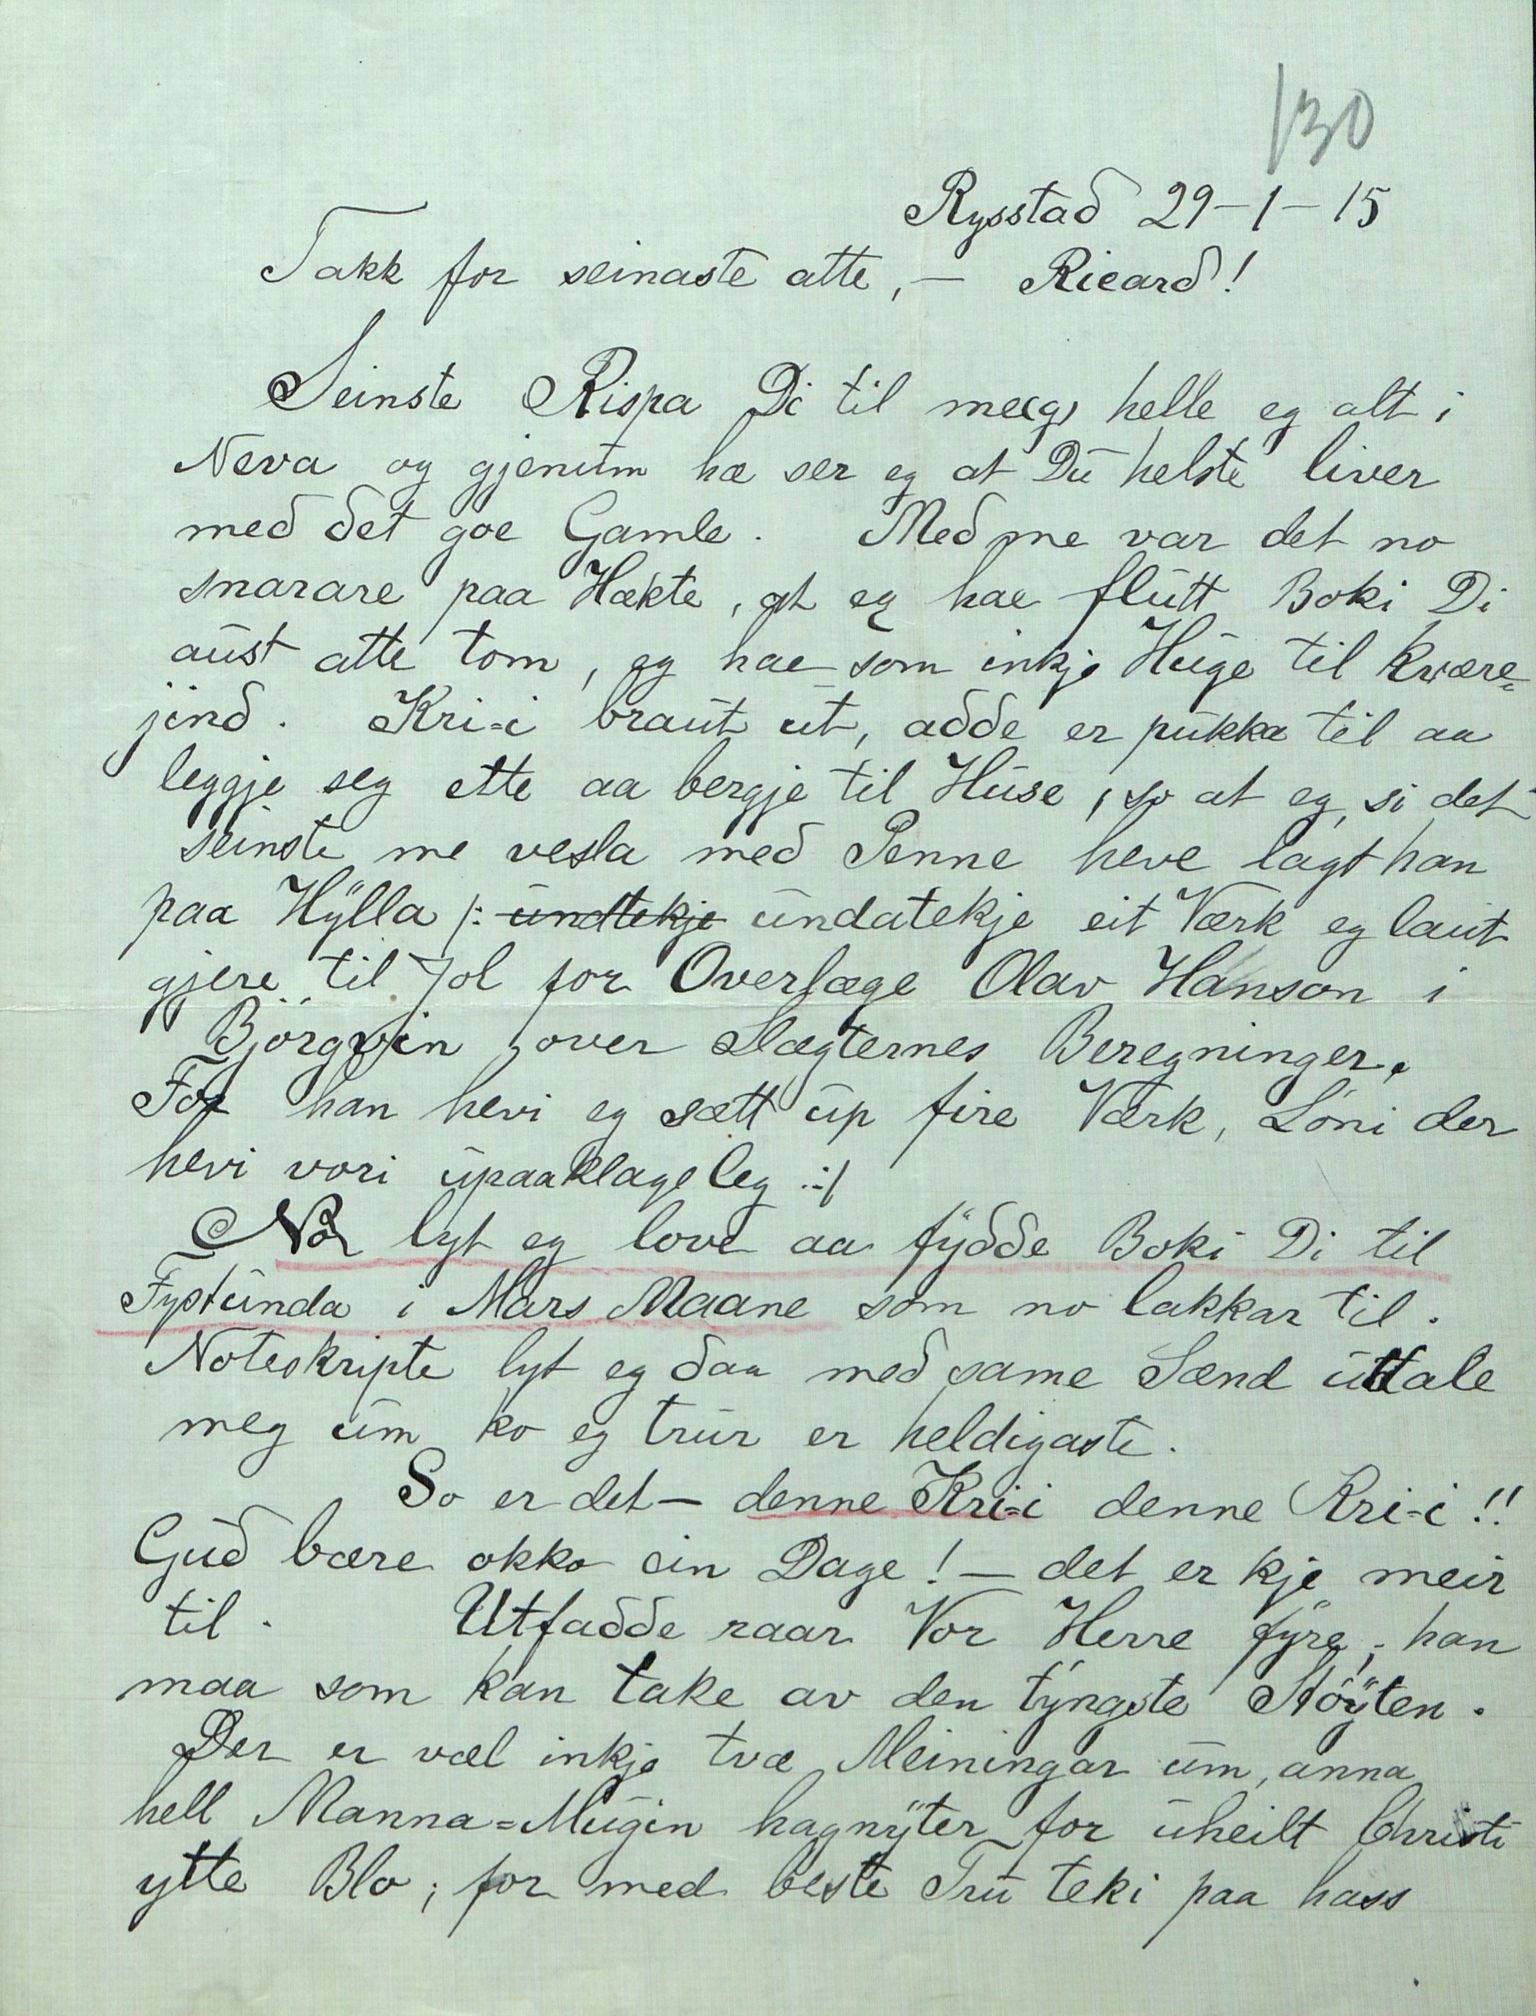 130
Rysstad 29-1-15
Takk for seinaste atte, — Ricard!
Seinste Rispa Di til me(g) helle eg alt i
Neva og gjenum hæ ser eg at Du helste liver
með det goe Gamle. Með me var det no
snarare paa Hækte, at eg hae flutt Boki Di
aust atte tom, eg hae som inkje Huge til kvære-
jind. Kri-i braut ut, adde er pukka til aa
leggje seg ette aa bergje til Huse, so at eg, si det
seinste me vesla með Penne heve lagt han
paa Hylla /: undtekje undatekje eit Værk eg laut
gjere til Jol for Overlæge Olav Hanson i
Björgvin over Slægternes Beregninger.
For han hevi eg sætt up fire Værk, Löni der
hevi vori upaaklageleg :/
No lyt eg love aa fydde Boki Di til
Fystunda i Mars Maane som no lakkar til.
Noteskripte lyt eg daa með same Sænd uttale
meg um ko eg trur er heldigaste.
So er det — denne Kri-i denne Kri-i!!
Guð bære okko ein Dage! — det er kje meir
til. Utfadde raar Vor Herre fyre; han
maa som kan take av den tyngste Stöyten.
Der er væl inkje tvæ Meiningar um, anna
hell Manna-Mugin hagnyter for uheilt Christi
ytte Blo; for med beste Tru teki paa hass